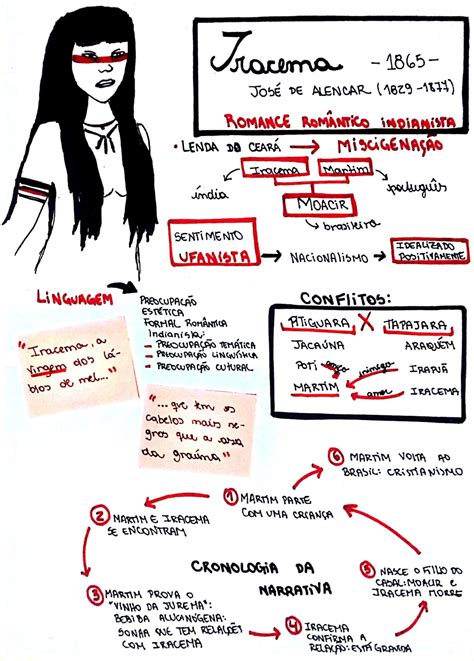 Iracema - 1865 -
JOSÉ DE ALENCAR (1829 - 1877)
ROMANCE ROMÂNTICO INDIANISTA
• LENDA DO CEARÁ → MISCIGENAÇÃO
Iracema Martim
índia português
MOACIR
brasileiro
SENTIMENTO
UFANISTA → NACIONALISMO → IDEALIZADO
POSITIVAMENTE
LINGUAGEM
PREOCUPAÇÃO
ESTÉTICA
FORMAL ROMÂNTICA
Indianista:
— PREOCUPAÇÃO TEMÁTICA
— PREOCUPAÇÃO LINGUÍSTICA
— PREOCUPAÇÃO CULTURAL
"Iracema, a
virgem dos lá-
bios de mel..."
"...que tem os
cabelos mais ne-
gros que a asa
da graúna"
CONFLITOS:
PITIGUARA X TAPAJARA
JACAÚNA ARAQUÉM
POTI inimigo IRAPUÃ
MARTIM amor IRACEMA
CRONOLOGIA DA
NARRATIVA
1 MARTIM PARTE
COM UMA CRIANÇA
2 MARTIM E IRACEMA
SE ENCONTRAM
3 MARTIM PROVA O
"VINHO DA JUREMA":
BEBIDA ALUCINÓGENA:
SONHA QUE TEM RELAÇÕES
COM IRACEMA
4 IRACEMA
CONFIRMA A
RELAÇÃO: ESTÁ GRÁVIDA
5 NASCE O FILHO DO
CASAL: MOACIR E
IRACEMA MORRE
6 MARTIM VOLTA AO
BRASIL: CRISTIANISMO